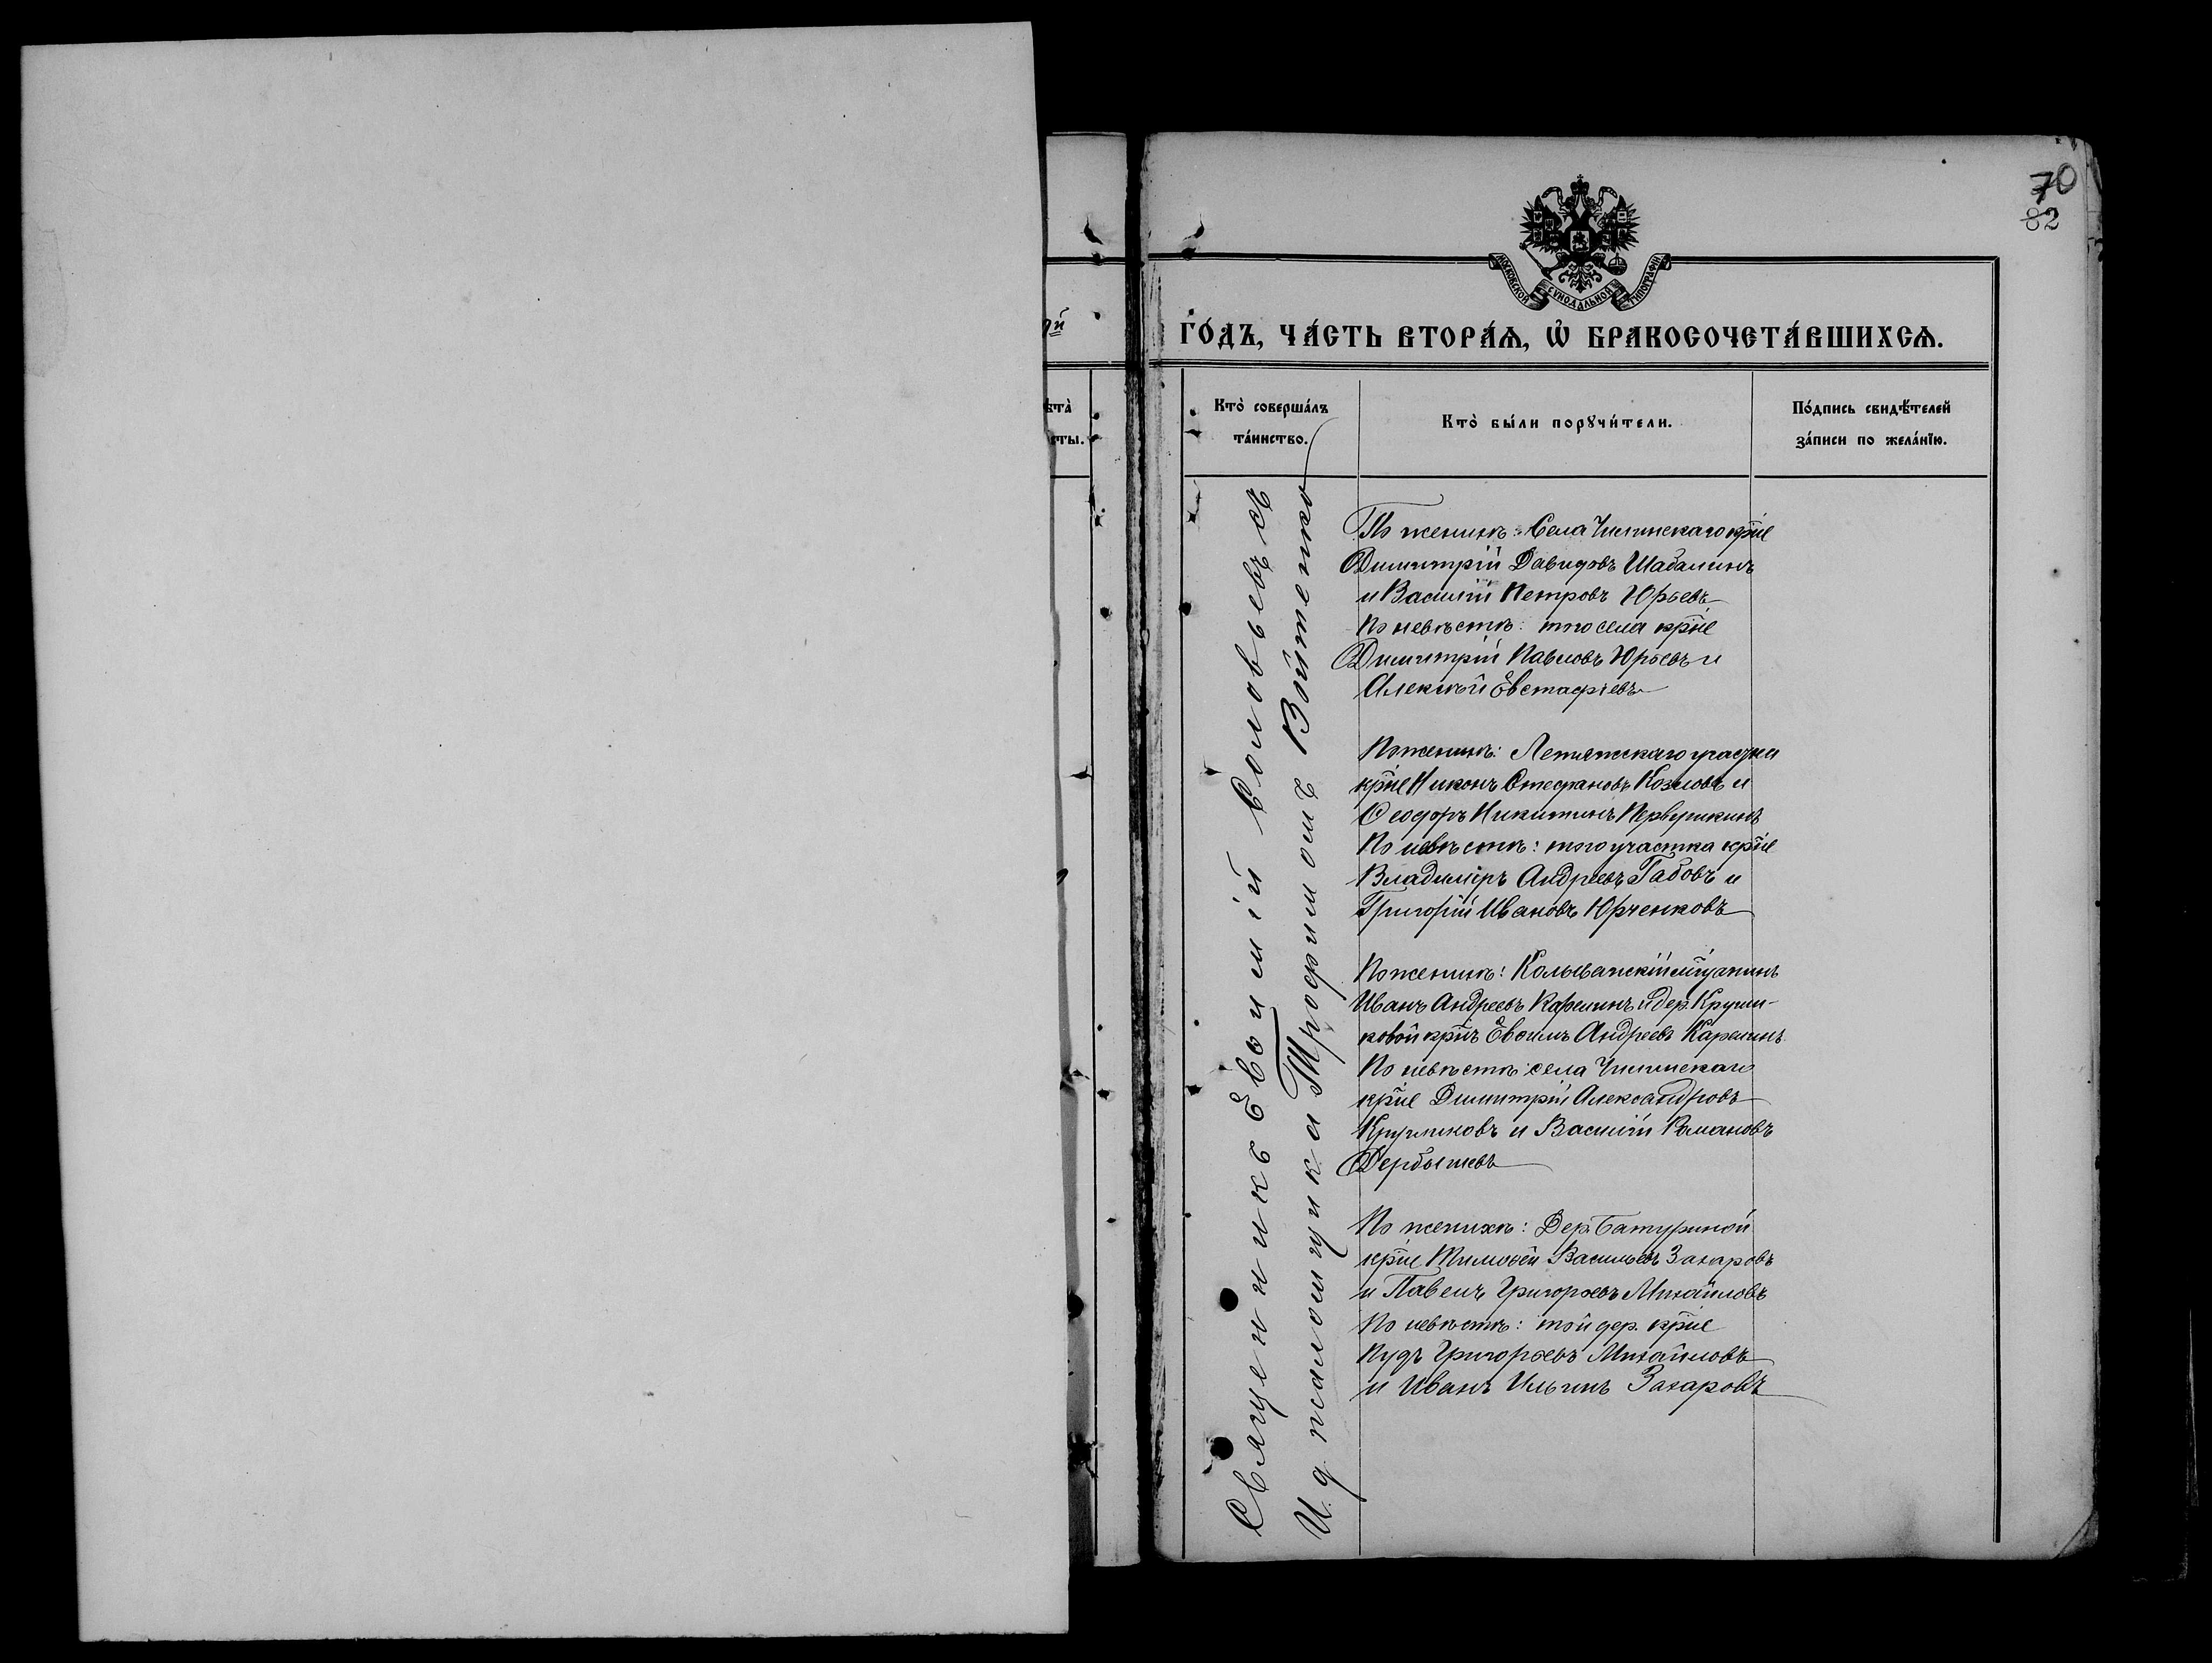 70
82
МОСКОВСКОЙ СѴНОДАЛЬНОЙ ТИПОГРАФІИ
го́дъ, ча́сть втора́ѧ, ѡ҆ бракосочета́вшихсѧ.
Кто̀ соверша́лъ
та́инство.
Кто̀ бы́ли порꙋчи́тели.
По́дпись свидѣ́телей
за́писи по жела́нїю.
ѣста̀
сты.
Священникъ Евѳимій Соловьевъ съ
И. д. псаломщика Трофимомъ Войтенко
По женихѣ: Села Чилинскаго кр̃не
Димитрій Давидовъ Шабалинъ
и Василій Петровъ Юрьевъ
По невѣстѣ: того села кр̃не
Димитрій Павловъ Юрьевъ и
Алексѣй Евстафіевъ
По женихѣ: Летяжскаго участка
кр̃не Никонъ Стефановъ Козловъ и
Ѳеодоръ Никитинъ Первушкинъ
По невѣстѣ: того участка кр̃не
Владиміръ Андреевъ Габовъ и
Григорій Ивановъ Юрченковъ
По женихѣ: Колыванскій мѣщанинъ
Иванъ Андреевъ Карелинъ и дер. Кругли-
ковой кр̃нъ Евѳимъ Андреевъ Карелинъ
По невѣстѣ: села Чилинскаго
кр̃не Димитрій Александровъ
Кругликовъ и Василій Романовъ
Дербышевъ
По женихѣ: Дер. Батуриной
кр̃не Тимоѳей Васильевъ Захаровъ
и Павелъ Григорьевъ Михайловъ
По невѣстѣ: той дер. кр̃не
Григорьевъ Михайловъ
и Иванъ Ильинъ Захаровъ